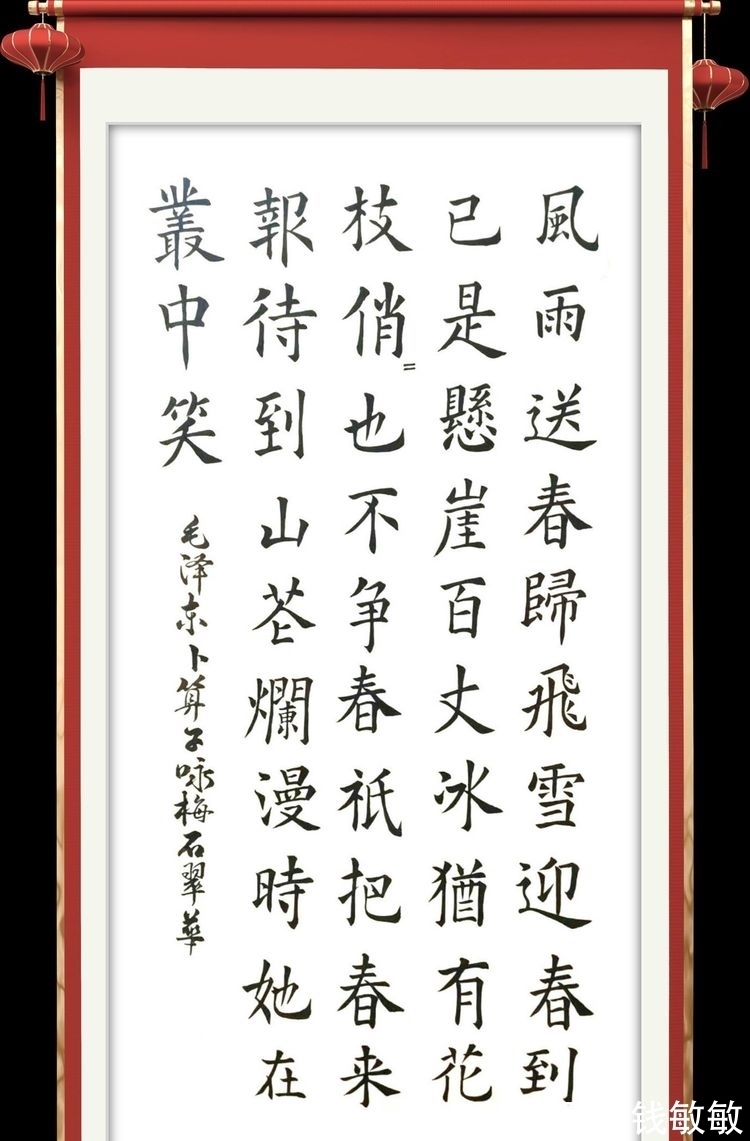 風雨送春歸飛雪迎春到
已是懸崖百丈冰猶有花
枝俏〻也不争春祇把春来
報待到山花爛漫時她在
叢中笑
毛泽东卜算子咏梅石翠華
钱敏敏